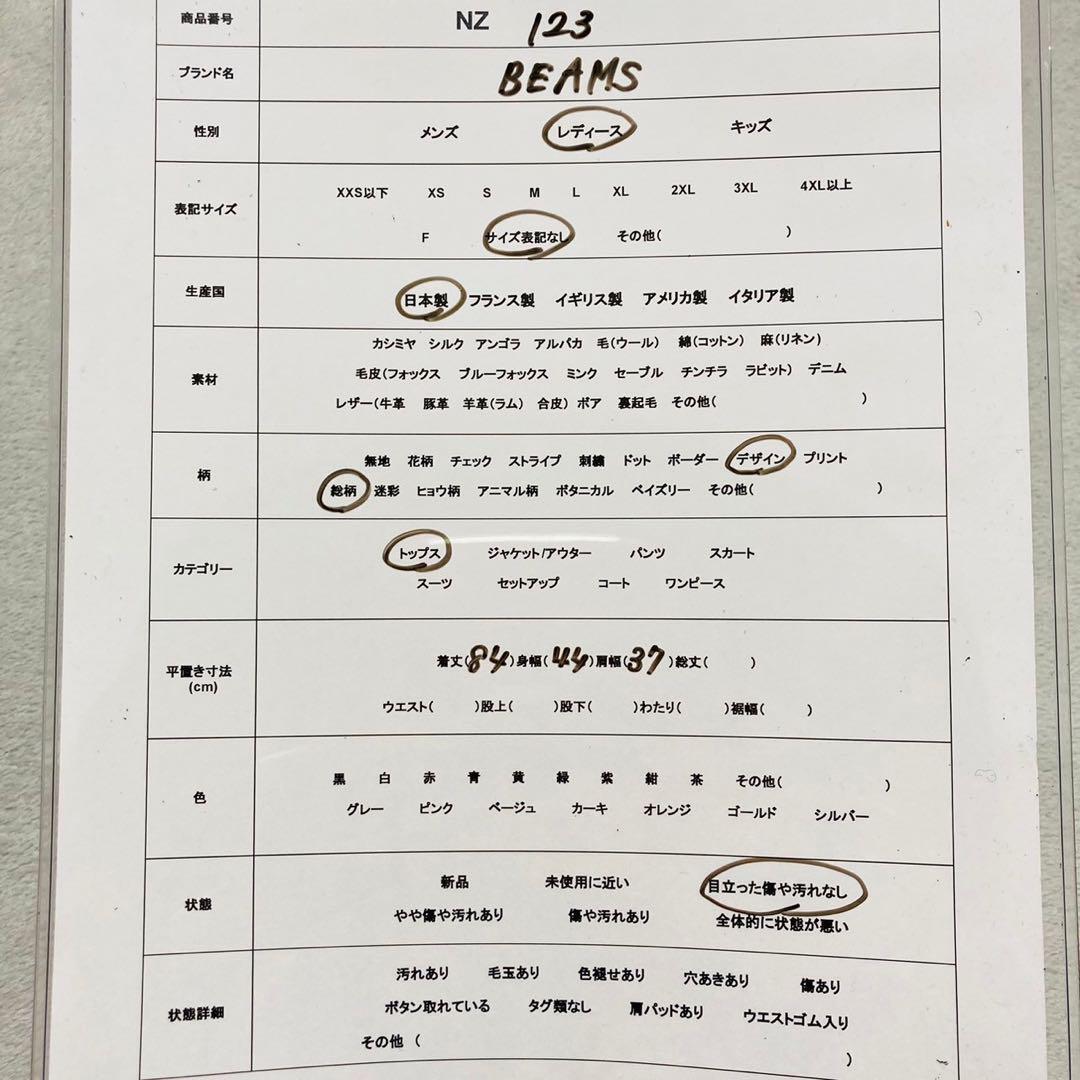 商品番号 NZ 123
ブランド名 BEAMS
性別 メンズ レディース キッズ
表記サイズ
XXS以下 XS S M L XL 2XL 3XL 4XL以上
F サイズ表記なし その他( )
生産国 日本製 フランス製 イギリス製 アメリカ製 イタリア製
素材
カシミヤ シルク アンゴラ アルパカ 毛(ウール) 綿(コットン) 麻(リネン)
毛皮(フォックス ブルーフォックス ミンク セーブル チンチラ ラビット) デニム
レザー(牛革 豚革 羊革(ラム) 合皮) ボア 裏起毛 その他( )
柄
無地 花柄 チェック ストライプ 刺繍 ドット ボーダー デザイン プリント
総柄 迷彩 ヒョウ柄 アニマル柄 ボタニカル ペイズリー その他( )
カテゴリー
トップス ジャケット/アウター パンツ スカート
スーツ セットアップ コート ワンピース
平置き寸法
(cm)
着丈(84)身幅(44)肩幅(37)総丈( )
ウエスト( )股上( )股下( )わたり( )裾幅( )
色
黒 白 赤 青 黄 緑 紫 紺 茶 その他( )
グレー ピンク ベージュ カーキ オレンジ ゴールド シルバー
状態
新品 未使用に近い 目立った傷や汚れなし
やや傷や汚れあり 傷や汚れあり 全体的に状態が悪い
状態詳細
汚れあり 毛玉あり 色褪せあり 穴あきあり 傷あり
ボタン取れている タグ類なし 肩パッドあり ウエストゴム入り
その他 ( )